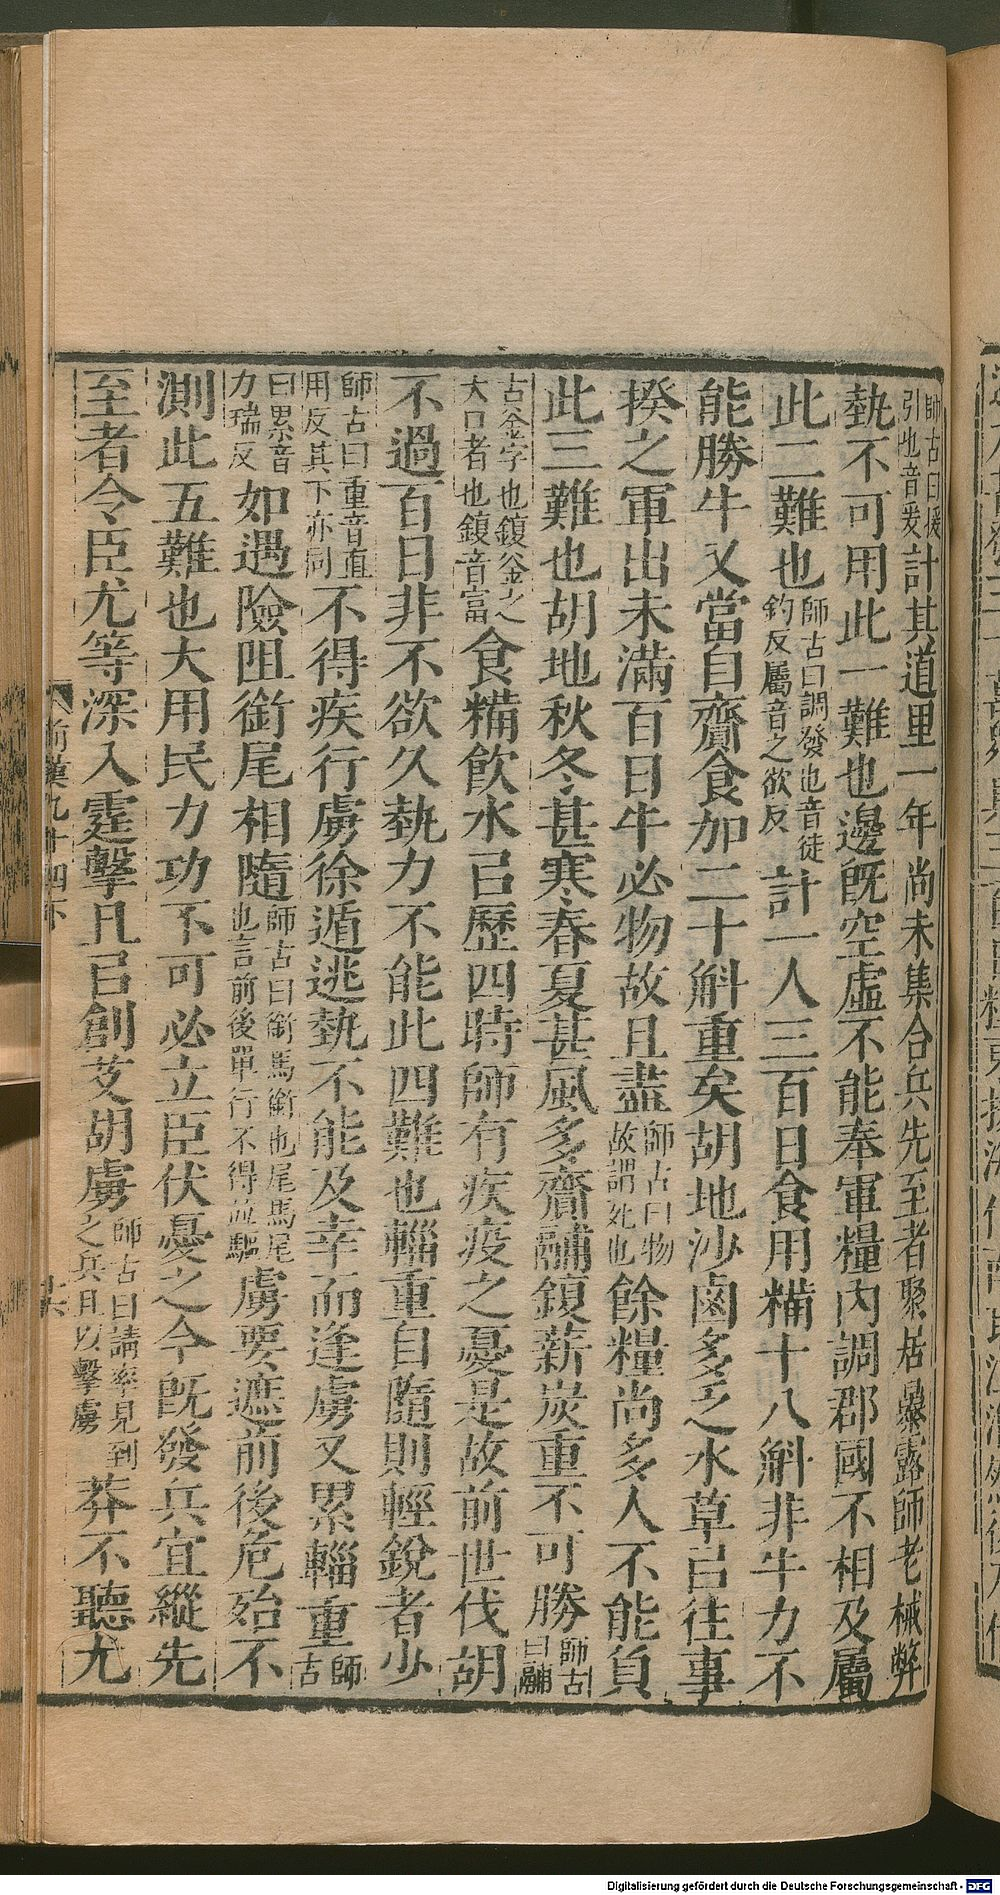 師古曰援引也音爰計其道里一年尚未集合兵先至者聚居暴露師老械弊
埶不可用此一難也邊既空虛不能奉軍糧內調郡國不相及屬
此二難也師古曰調發也音徒釣反屬音之欲反計一人三百日食用糒十八斛非牛力不
能勝牛又當自齎食加二十斛重矣胡地沙鹵多乏水草㠯往事
揆之軍出未滿百日牛必物故且盡師古曰物故謂死也餘糧尚多人不能負
此三難也胡地秋冬甚寒春夏甚風多齎鬴鍑薪炭重不可勝師古曰鬴
古釜字也鍑釜之大口者也鍑音富食糒飲水㠯歷四時師有疾疫之憂是故前世伐胡
不過百日非不欲久埶力不能此四難也輜重自隨則輕銳者少
師古曰重音直用反其下亦同不得疾行虜徐遁逃埶不能及幸而逢虜又累輜重師古
曰累音力瑞反如遇險阻銜尾相隨師古曰銜馬銜也尾馬尾也言前後單行不得並驅虜要遮前後危殆不
測此五難也大用民力功不可必立臣伏憂之今既發兵宜縱先
至者令臣尤等深入霆擊且㠯創艾胡虜師古曰請率見到之兵且以擊虜莽不聽尤
前漢九十四下
Digitalisierung gefördert durch die Deutsche Forschungsgemeinschaft - DFG